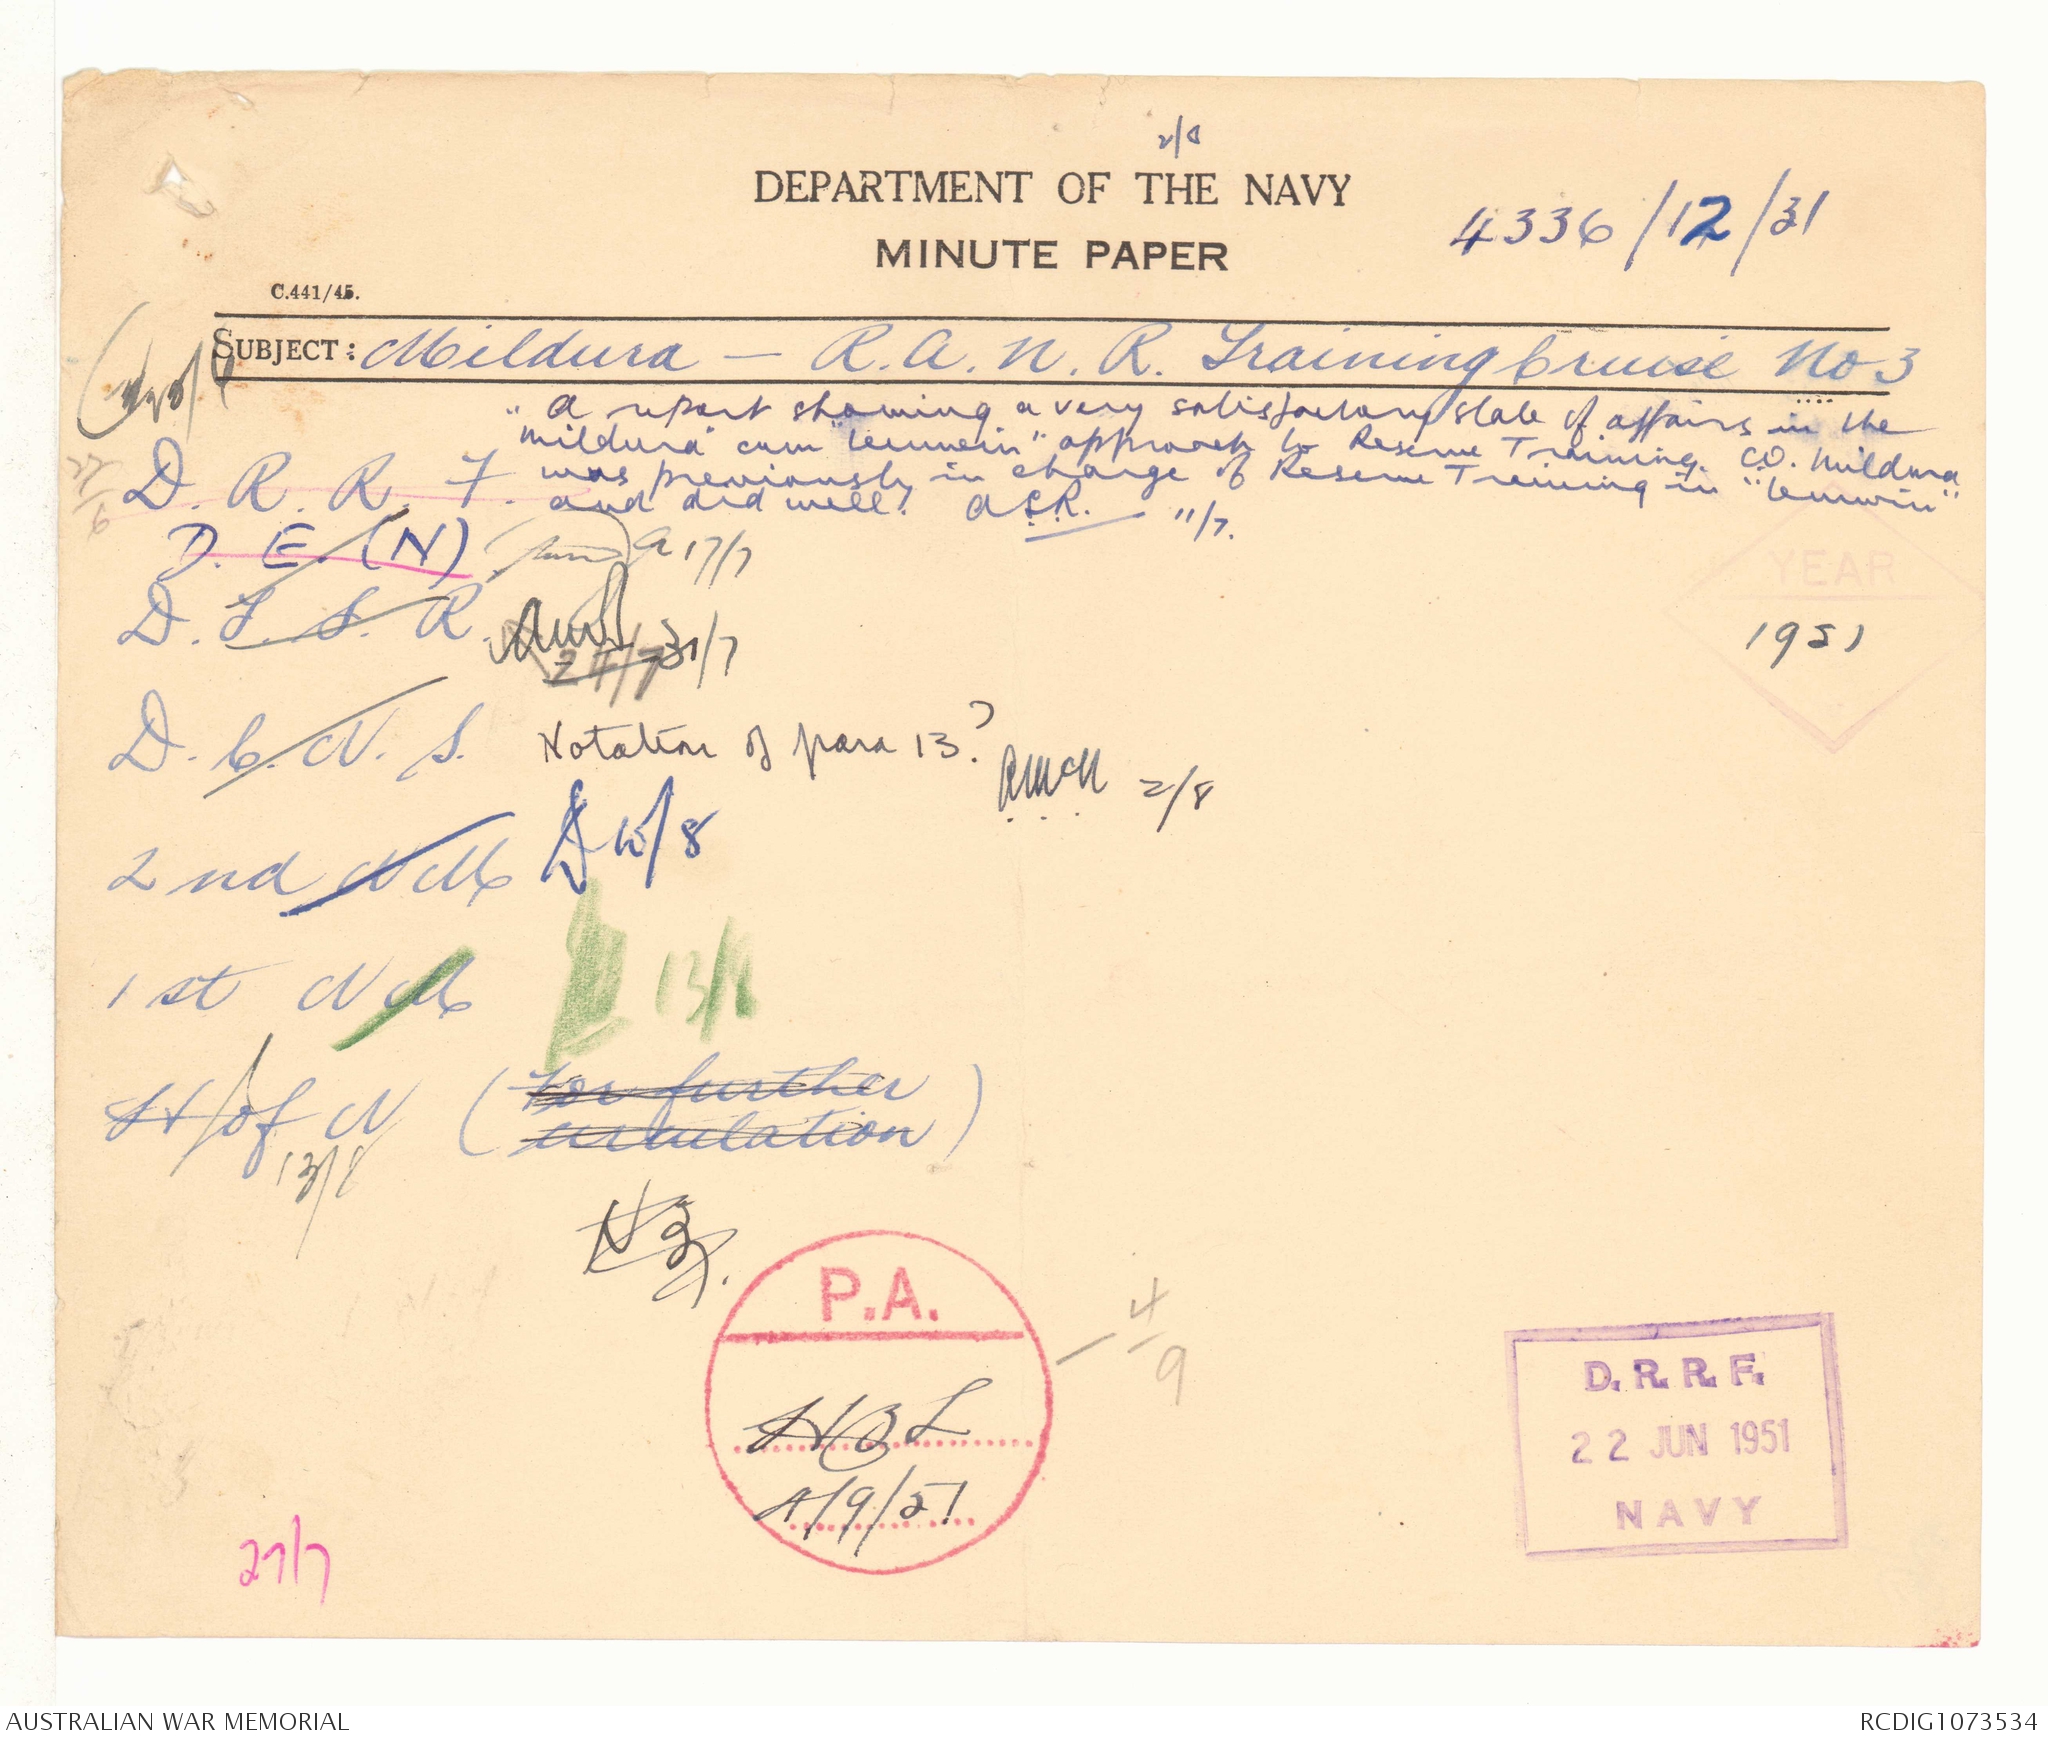 2/8
DEPARTMENT OF THE NAVY
MINUTE PAPER
4336/12/31
C.441/45.
SUBJECT: Mildura — R.A.N.R. Training Cruise No 3
"A report showing a very satisfactory state of affairs in the
"Mildura" cum "Leeuwin" approach to Reserve Training. C.O. Mildura
was previously in charge of Reserve Training in "Leeuwin"
and did well. 11/7.
22/6
D. R. R. F.
D. E. (N) 17/7
D. T. S. R. 24/7 31/7
YEAR
1951
D. C. N. S. Notation of para 13? 2/8
2nd NM 10/8
1st NM 13/8
H/of N (For further
circulation)
13/8
P.A.
HBL
4/9/51
4/9
D.R.R.F.
22 JUN 1951
NAVY
27/7
AUSTRALIAN WAR MEMORIAL
RCDIG1073534